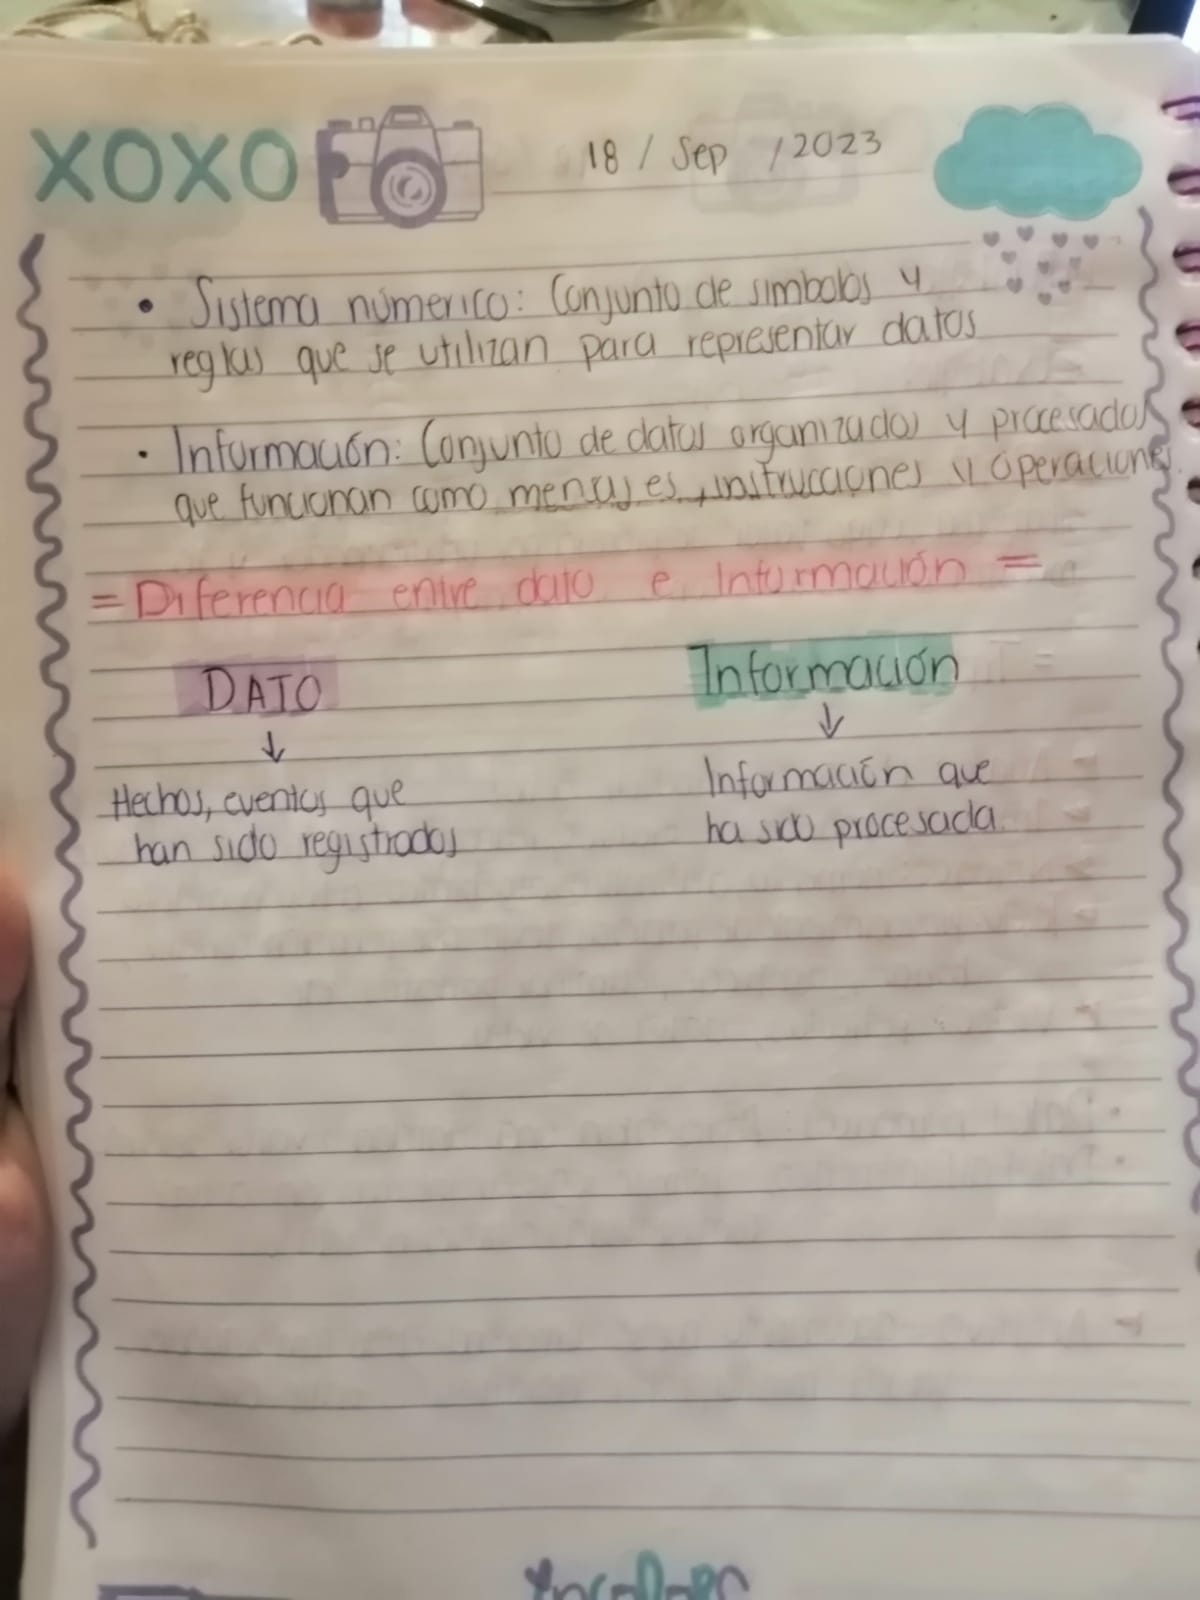 XOXO
18 / Sep / 2023
• Sistema númerico: Conjunto de simbolos y
reglas que se utilizan para representar datos
• Información: Conjunto de datos organizados y procesados
que funcionan como mensajes, instrucciones y operaciones.
= Diferencia entre dato e Información =
DATO Información
↓ ↓
Hechos, eventos que Información que
han sido registrados ha sido procesada.